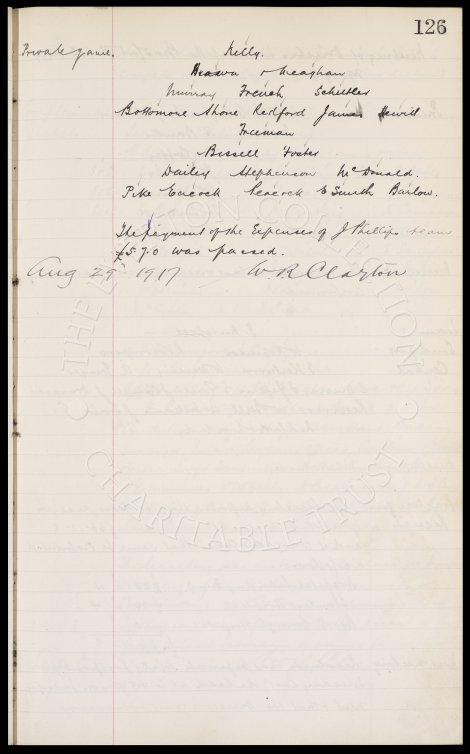 126
Private game. Kelly.
& Meaghan
Murray French Schuttes
Bottomore Shone Redford James Hewitt
Freeman
Bissell Foster
Dailey Stephenson McDonald.
Pike Peacock E Smith Barlow.
The payment of the Expenses of J Phillips team
£5.7.0 was passed.
Aug 29th 1917 W. R Clayton
COLLECTION
CHARITABLE TRUST